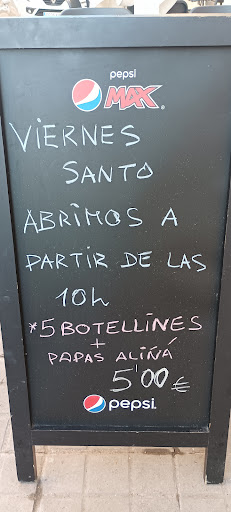 pepsi
MAX®
VIERNES
SANTO
ABRIMOS A
PARTIR DE LAS
10h
*5 BOTELLINES
+
PAPAS ALIÑÁ
5'00 €
pepsi.